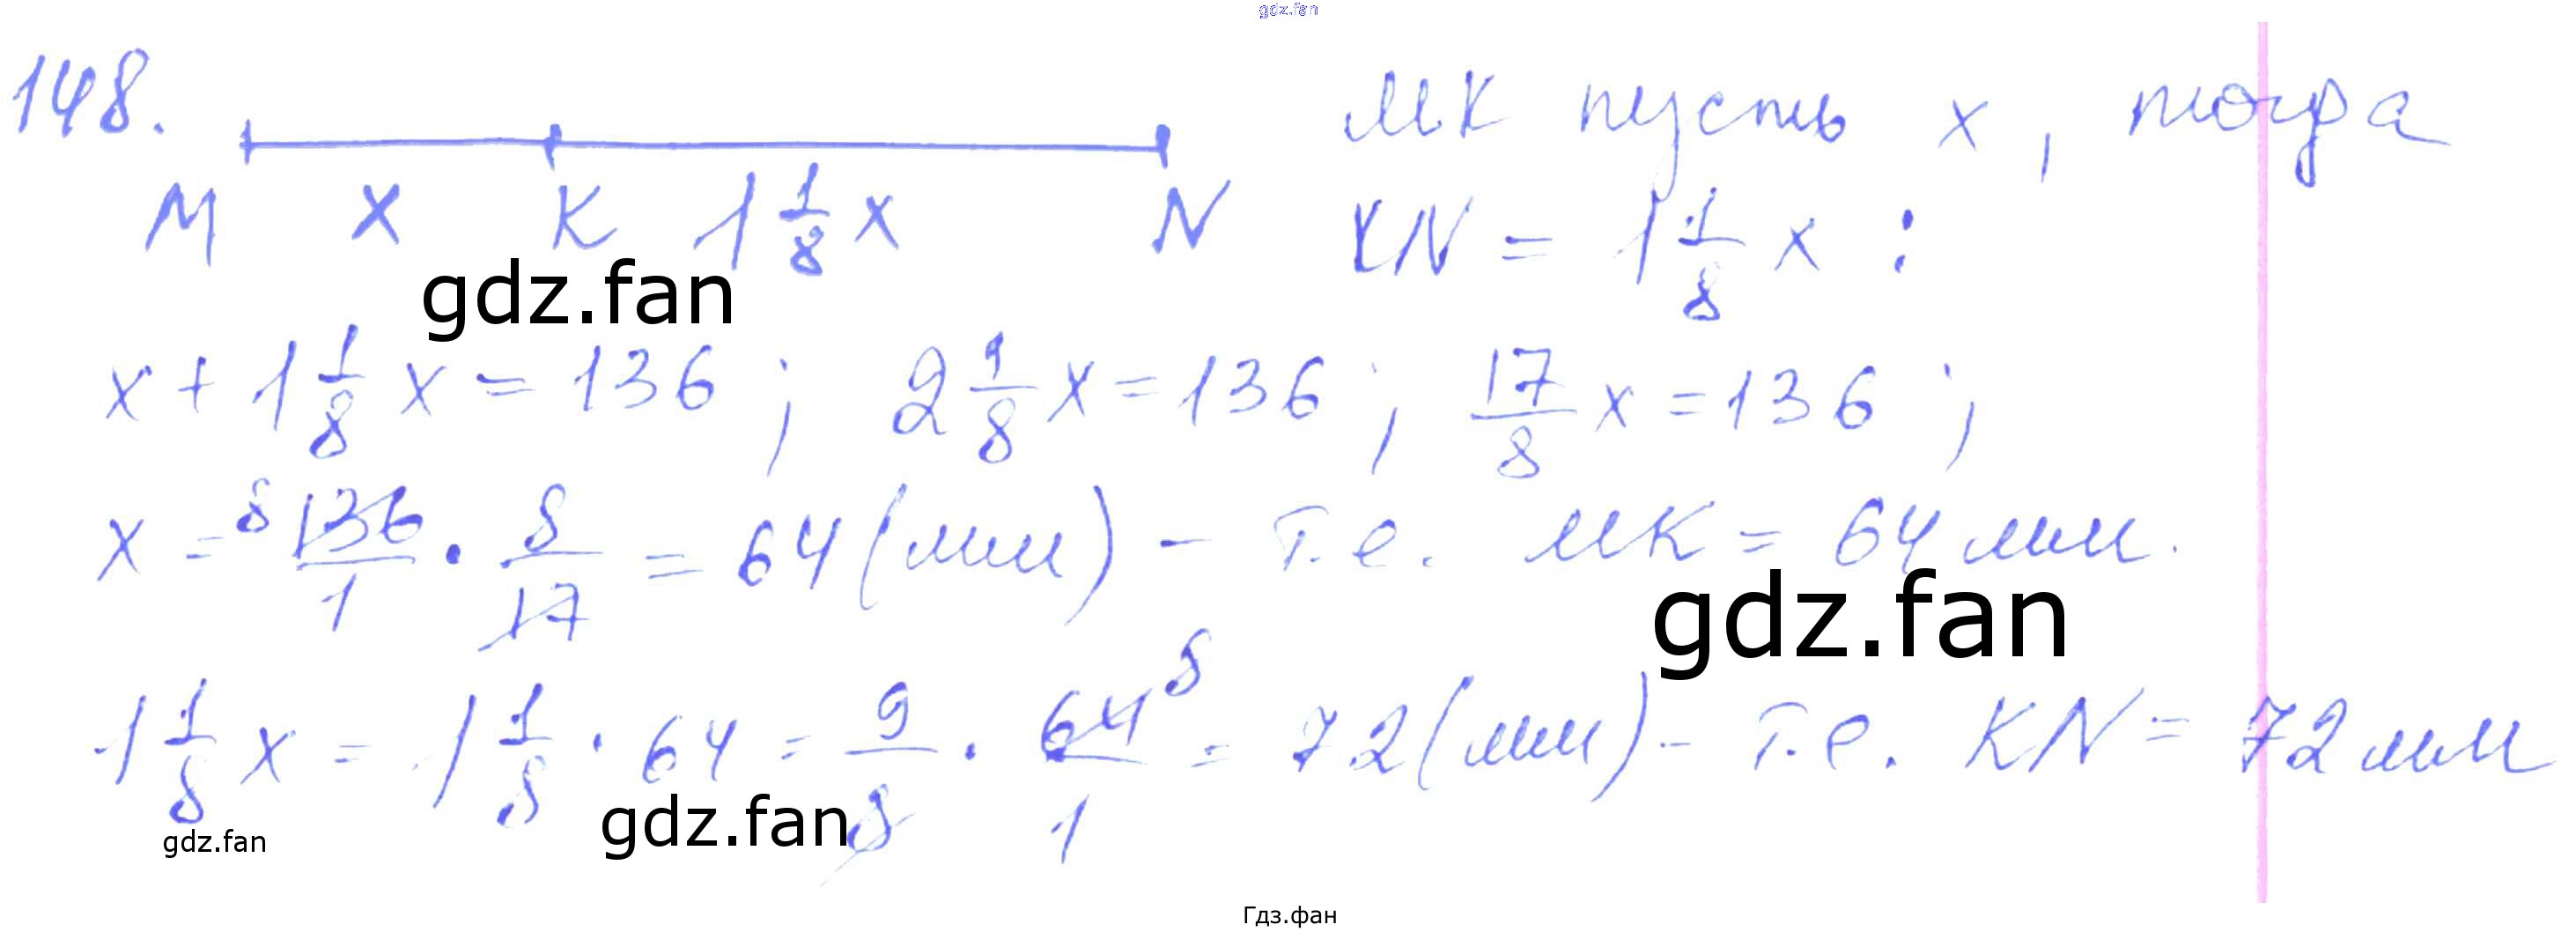 gdz.fan
148.
М x К 1 1/8 x N
МК пусть x, тогда
KN = 1 1/8 x :
gdz.fan
x + 1 1/8 x = 136 ; 2 1/8 x = 136 ; 17/8 x = 136 ;
x = ⁸136/1 · 8/17 = 64 (мм) - т.е. МК = 64 мм.
gdz.fan
1 1/8 x = 1 1/8 · 64 = 9/8 · 64⁸/1 = 72 (мм) - т.е. KN = 72 мм
gdz.fan
gdz.fan
Гдз.фан